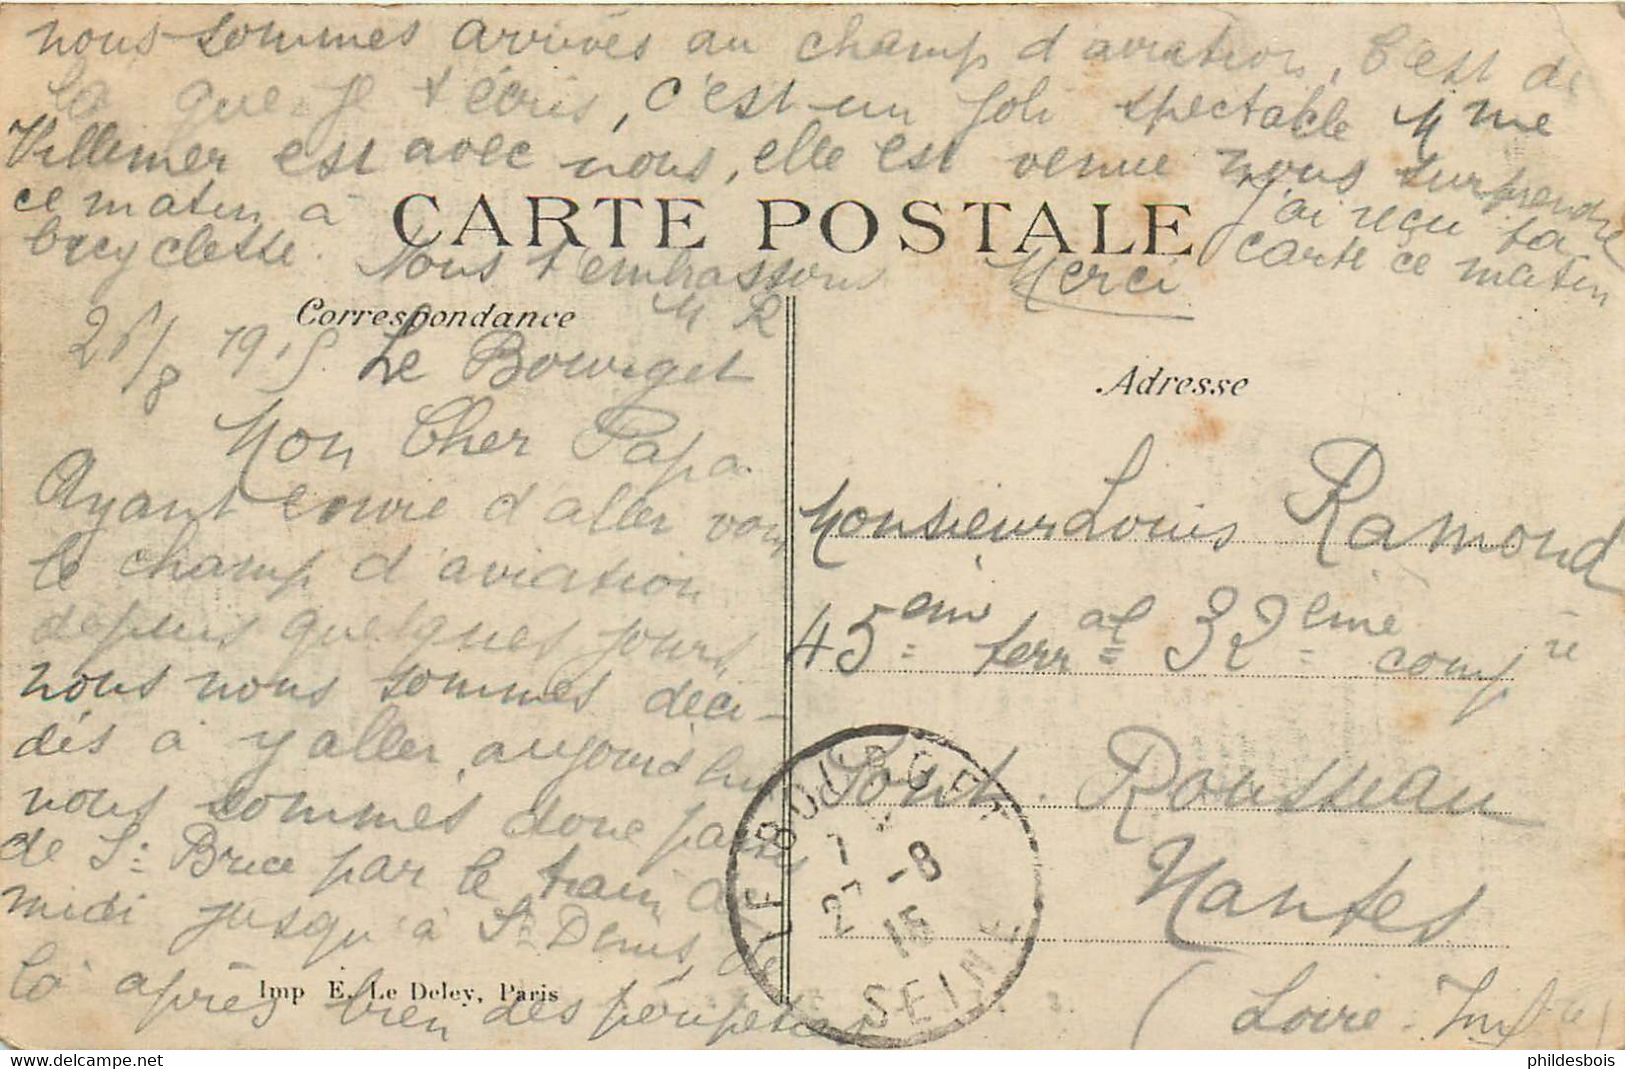 nous sommes arrivés au champ d'aviation, C'est de
là que je t'écris, c'est un joli spectacle Mme
Villemer est avec nous, elle est venue nous surprendre
ce matin à
bicyclette.
Nous t'embrassons
M R
Merci
J'ai reçu ta
carte ce matin
CARTE POSTALE
Correspondance
Adresse
26/8 1915. Le Bourget
Mon Cher Papa
Ayant envie d'aller voir
le champ d'aviation
depuis quelques jours,
nous nous sommes déci-
dés à y aller aujourd'hui
nous sommes donc partis
de St Brice par le train de
midi jusqu'à St Denis, de
là après bien des péripéties
Imp E. Le Deley, Paris
Monsieur Louis Ramond
45eme terral 32eme compie
Pont-Rousseau
Nantes
(Loire-Infre)
LE BOURGET
27 -8
15
SEINE
phildesbois